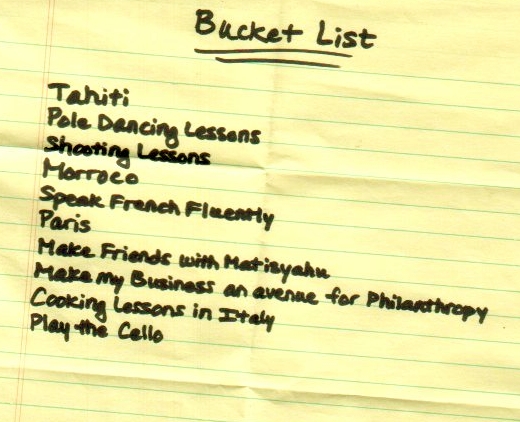 Bucket List
Tahiti
Pole Dancing Lessons
Shooting Lessons
Morroco
Speak French Fluently
Paris
Make Friends with Matisyahu
Make my Business an avenue for Philanthropy
Cooking Lessons in Italy
Play the Cello